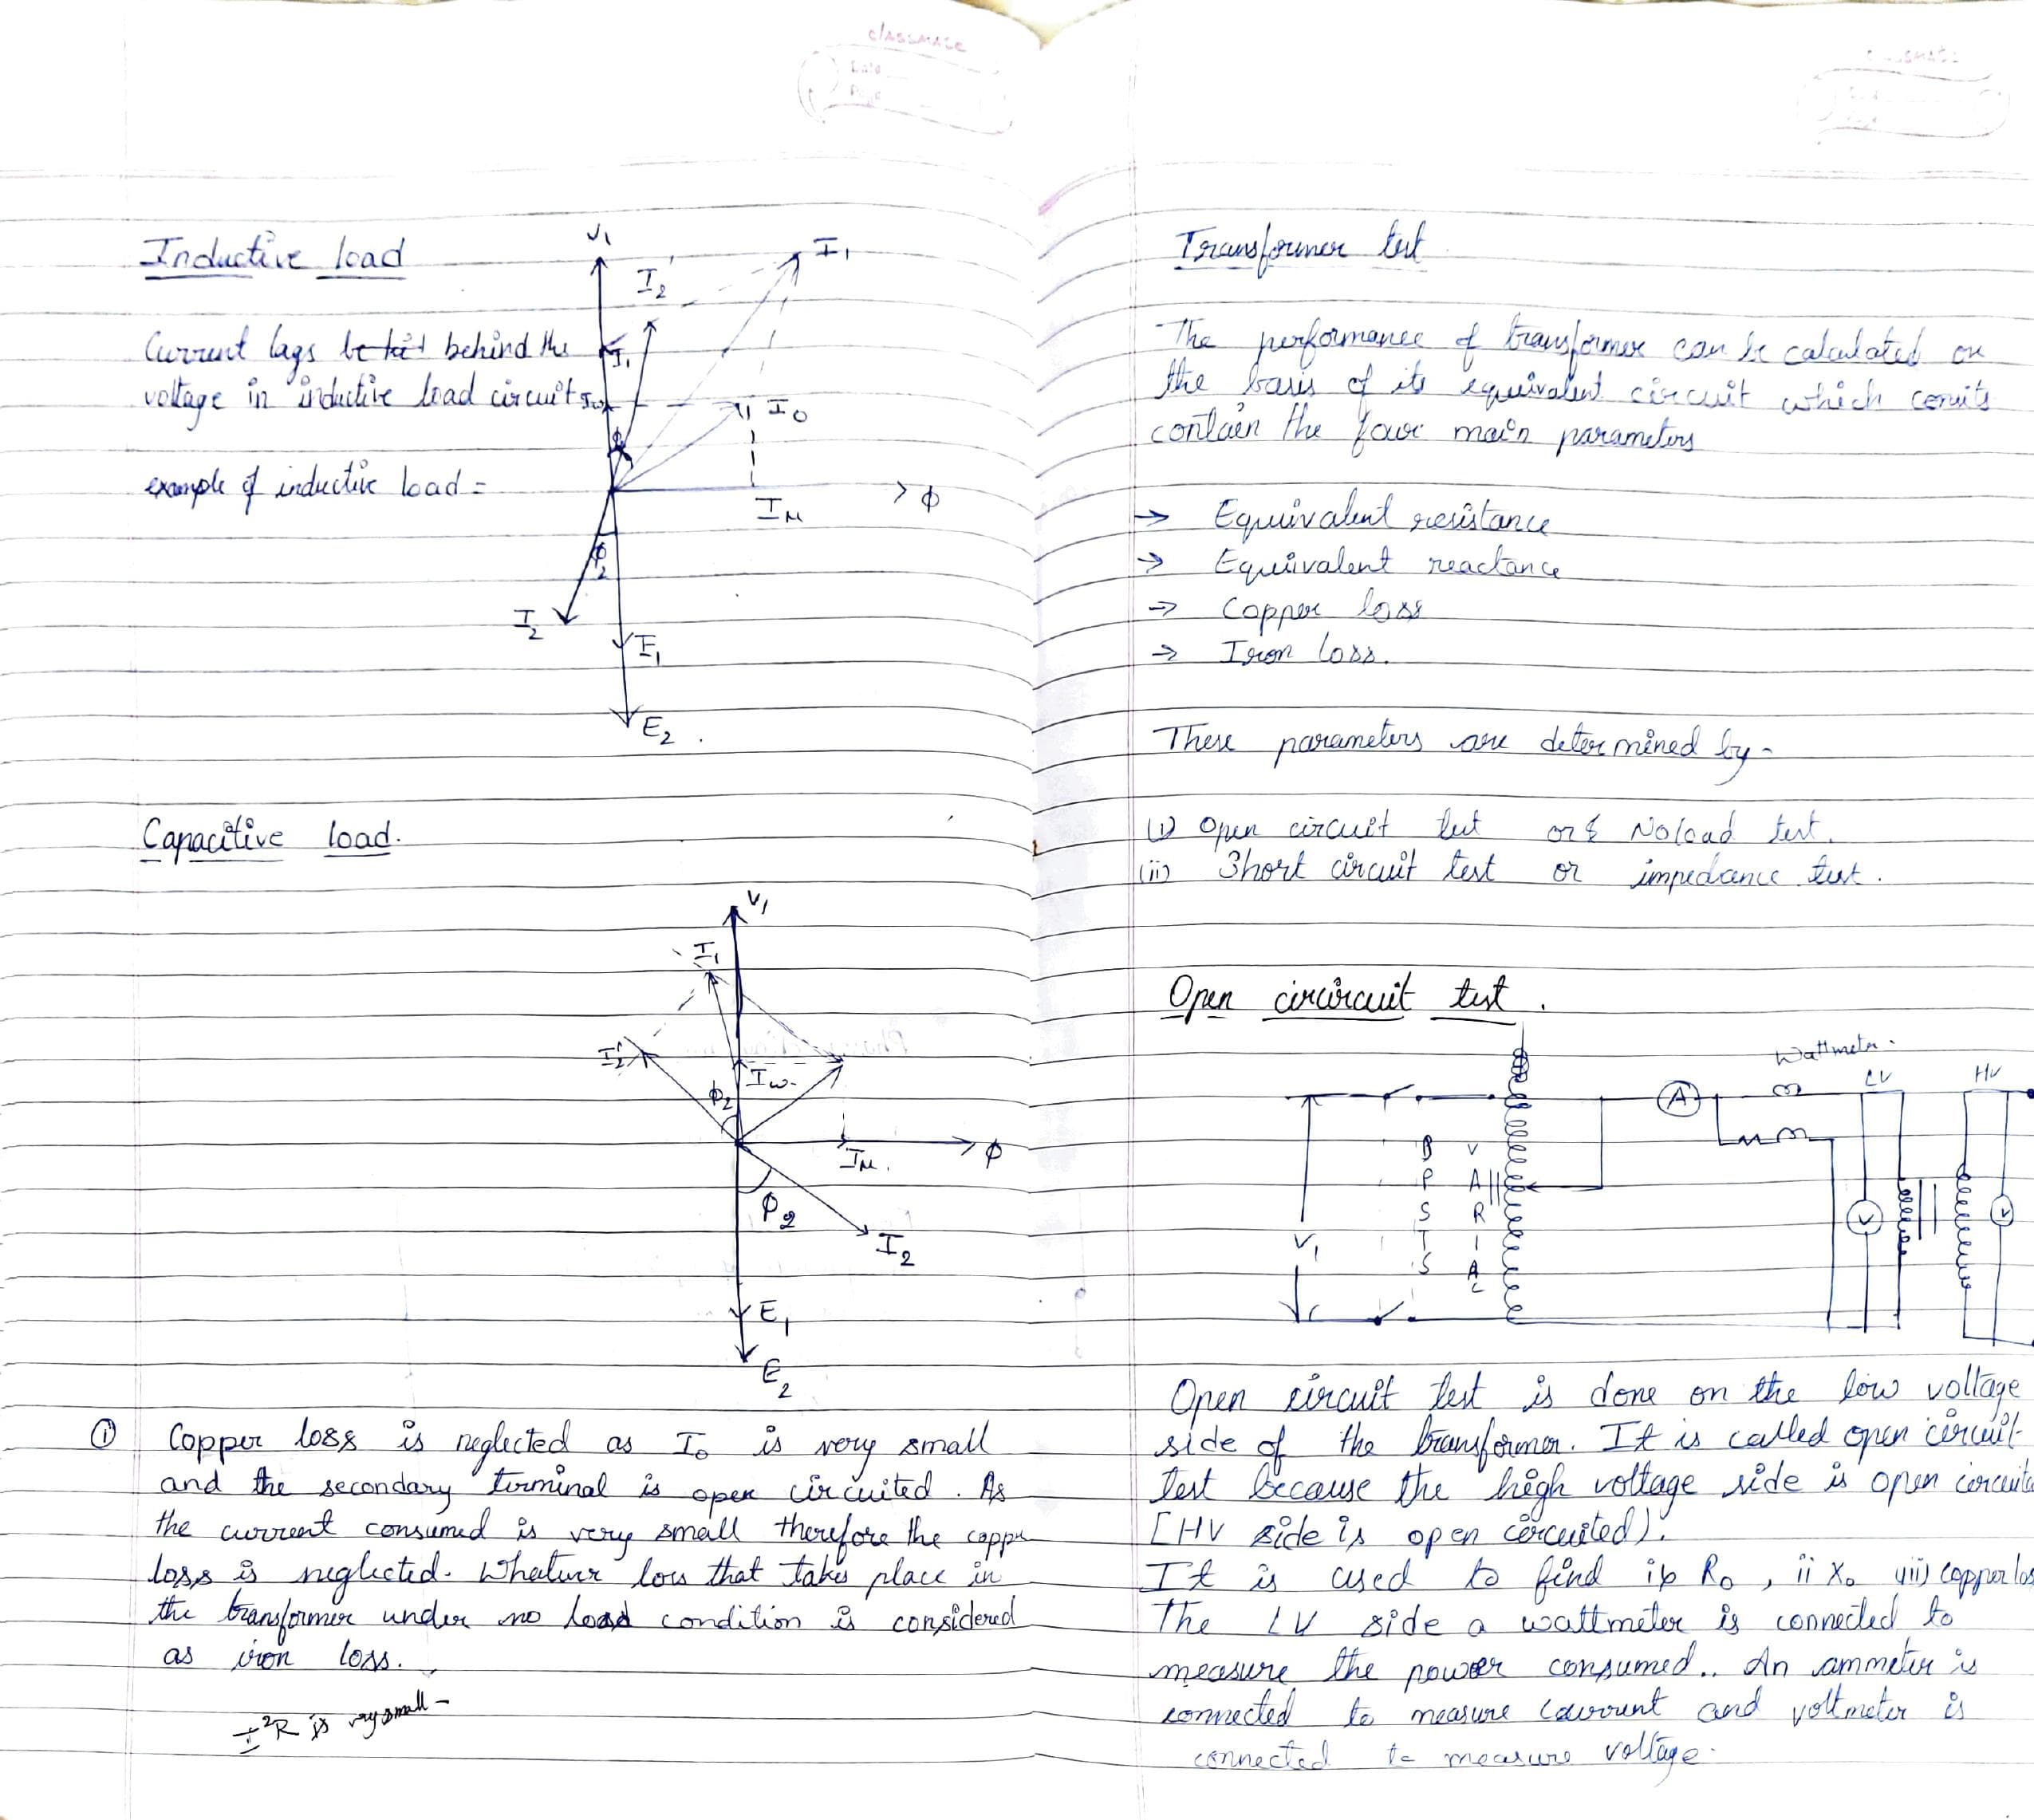 classmate
Date
Page
Inductive load
Current lags behind the
voltage in inductive load circuit
example of inductive load =
V1
I2'
I1
I1'
Iω
I0
Iμ
ϕ
ϕ2
I2
E1
E2 .
Capacitive load.
V1
I1
I2'
Iω
ϕ2
Iμ.
ϕ
ϕ2
I2
E1
E2
(i) Copper loss is neglected as I0 is very small
and the secondary terminal is open circuited. As
the current consumed is very small therefore the coppe
loss is neglected. Whatever loss that takes place in
the transformer under no load condition is considered
as iron loss.
I²R is very small -
Transformer test
The performance of transformer can be calculated on
the basis of its equivalent circuit which
contain the four main parameters
→ Equivalent resistance
→ Equivalent reactance
→ Copper loss
→ Iron loss.
These parameters are determined by -
(i) Open circuit test or No load test.
(ii) Short circuit test or impedance test.
Open circircuit test .
Wattmeter.
LV
HV
A
V1
DPSTS
VARIAC
V
V
Open circuit test is done on the low voltage
side of the transformer. It is called open circuit
test because the high voltage side is open circuite
[HV side is open circuited).
It is used to find i R0 , ii X0 iii) copper los
The LV side a wattmeter is connected to
measure the power consumed.. An ammeter is
connected to measure current and voltmeter is
connected to measure voltage.